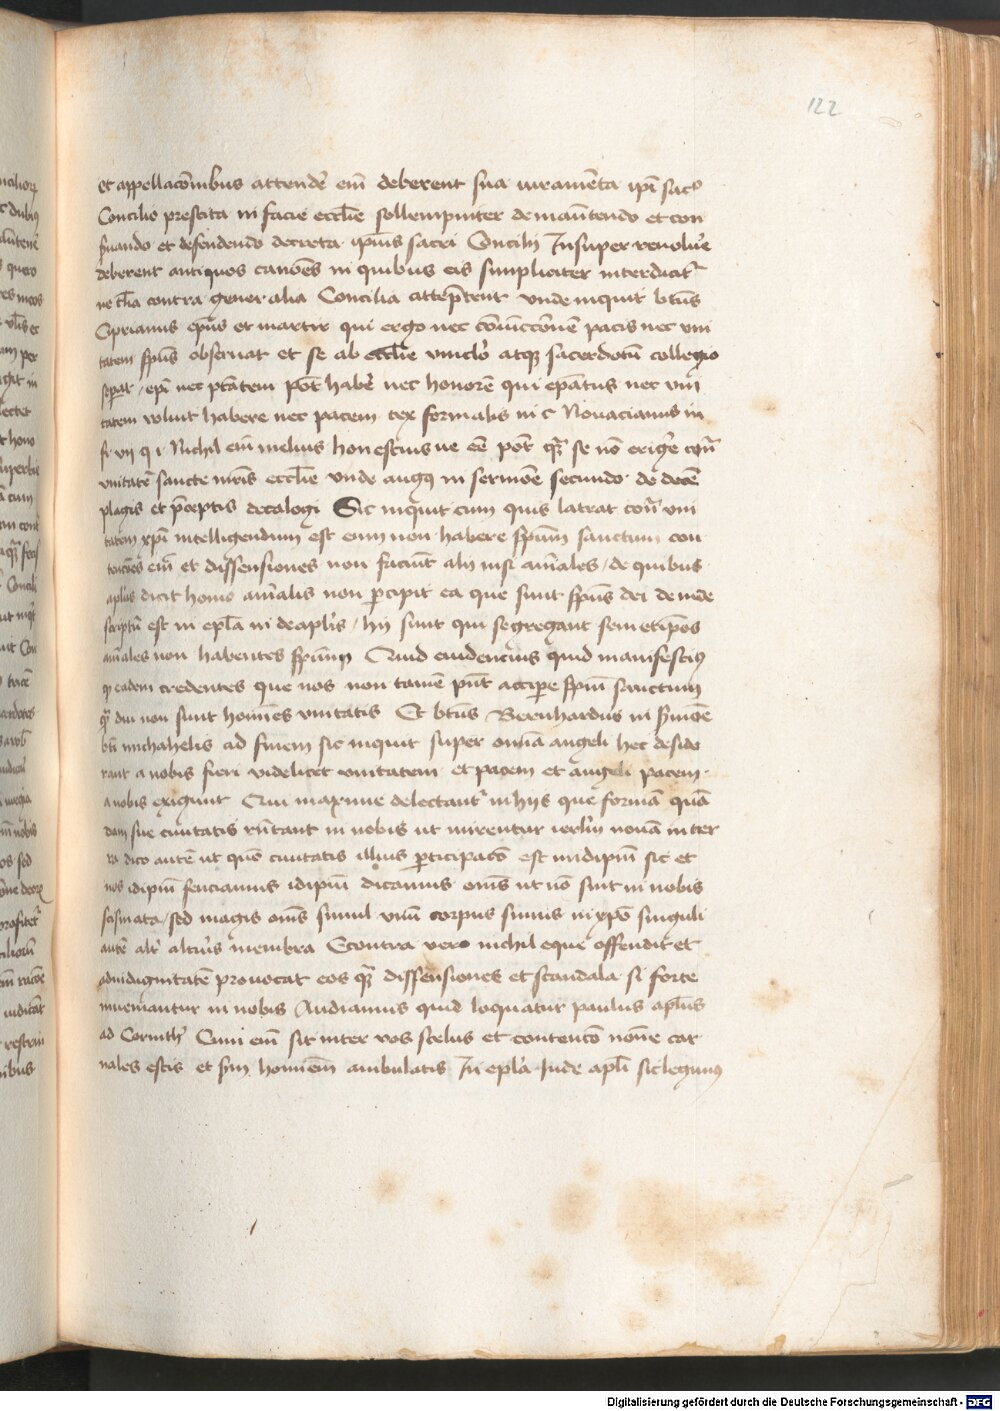 122
et appellacōnibus attendē em̄ deberent sua iuramēta ip̄i sacō
Concilio prestita in facie eccl̄ie sollempniter de manūtendo et con
seruando et defendendo decreta ipīus sacri Concilij Insuper reuoluēre
deberent antiquos canōēs in quibus eis simpliciter interdicit̄
ne cl̄ia contra generalia Concilia attēptent vnde inquit btūs
Ciprianus ep̄us et martir qui ergo nec cōniccōnem pacis nec vni
tatem sp̄us obseruat et se ab eccl̄ie vinclō atq sacerdotū collegio
sep̄at / ep̄i nec ptātem pōt habē nec honorē qui ep̄atus nec vnī
tatem voluit habere nec pacem tex formalis in c Nouacianus in
fi vij q i Nichil em̄ melius honestius ue eē pōt quā se nō erigē contrā
vnitatē sancte mr̄is eccl̄ie vnde aug9 in sermōe secundo de decē
plagis et p̄ceptis decalogi Sic inquit cum quis latrat contrā vni
tatem xp̄i intelligendum est eum non habere sp̄um sanctum con
tencōes em̄ et dissensiones non faciūt alij nisi aīales / de quibus
apl̄us dicit homo aīalis non p̄cipit ea que sunt sp̄us dei de inde
scriptū est in epl̄a iude apl̄is / hij sunt qui segregant semetip̄os
aīales non habentes sp̄um Quid euidencius quid manifestius
q eadem credentes que nos non tamē pn̄t accipe sp̄m sanctum
qn̄ diu non sunt homīes vnitatis Et btūs Bernhardus in s̄mōe
bti michahelis ad finem sic inquit super omīa angeli hec deside
rant a nobis fieri videlicet vnitatem et pacem et angeli pacem
a nobis exigunt Qui maxime delectantr in hijs que formā quā
dam sue ciuitatis rn̄tant in nobis ut mirentur ierlm̄ nouā in ter
ra dico autē ut quō ciuitatis illius p̄ticipacō est in idipm̄ sic et
nos idipm̄ senciamus idipm̄ dicamus om̄s ut nō sint in nobis
scismata / sed magis om̄s simul vnū corpus sumus in xp̄o singuli
autē altr altīus membra Econtra vero nichil eque offendit et
ad indignitatē prouocat eos quā dissensiones et scandala si forte
inueniantur in nobis Audiamus quid loquatur paulus apl̄us
ad Corinth Cum em̄ sit inter vos scelus et contencō nōne car
nales estis et s̄m homīem ambulatis In epl̄a Iude apl̄i sic legimus
Digitalisierung gefördert durch die Deutsche Forschungsgemeinschaft - DFG